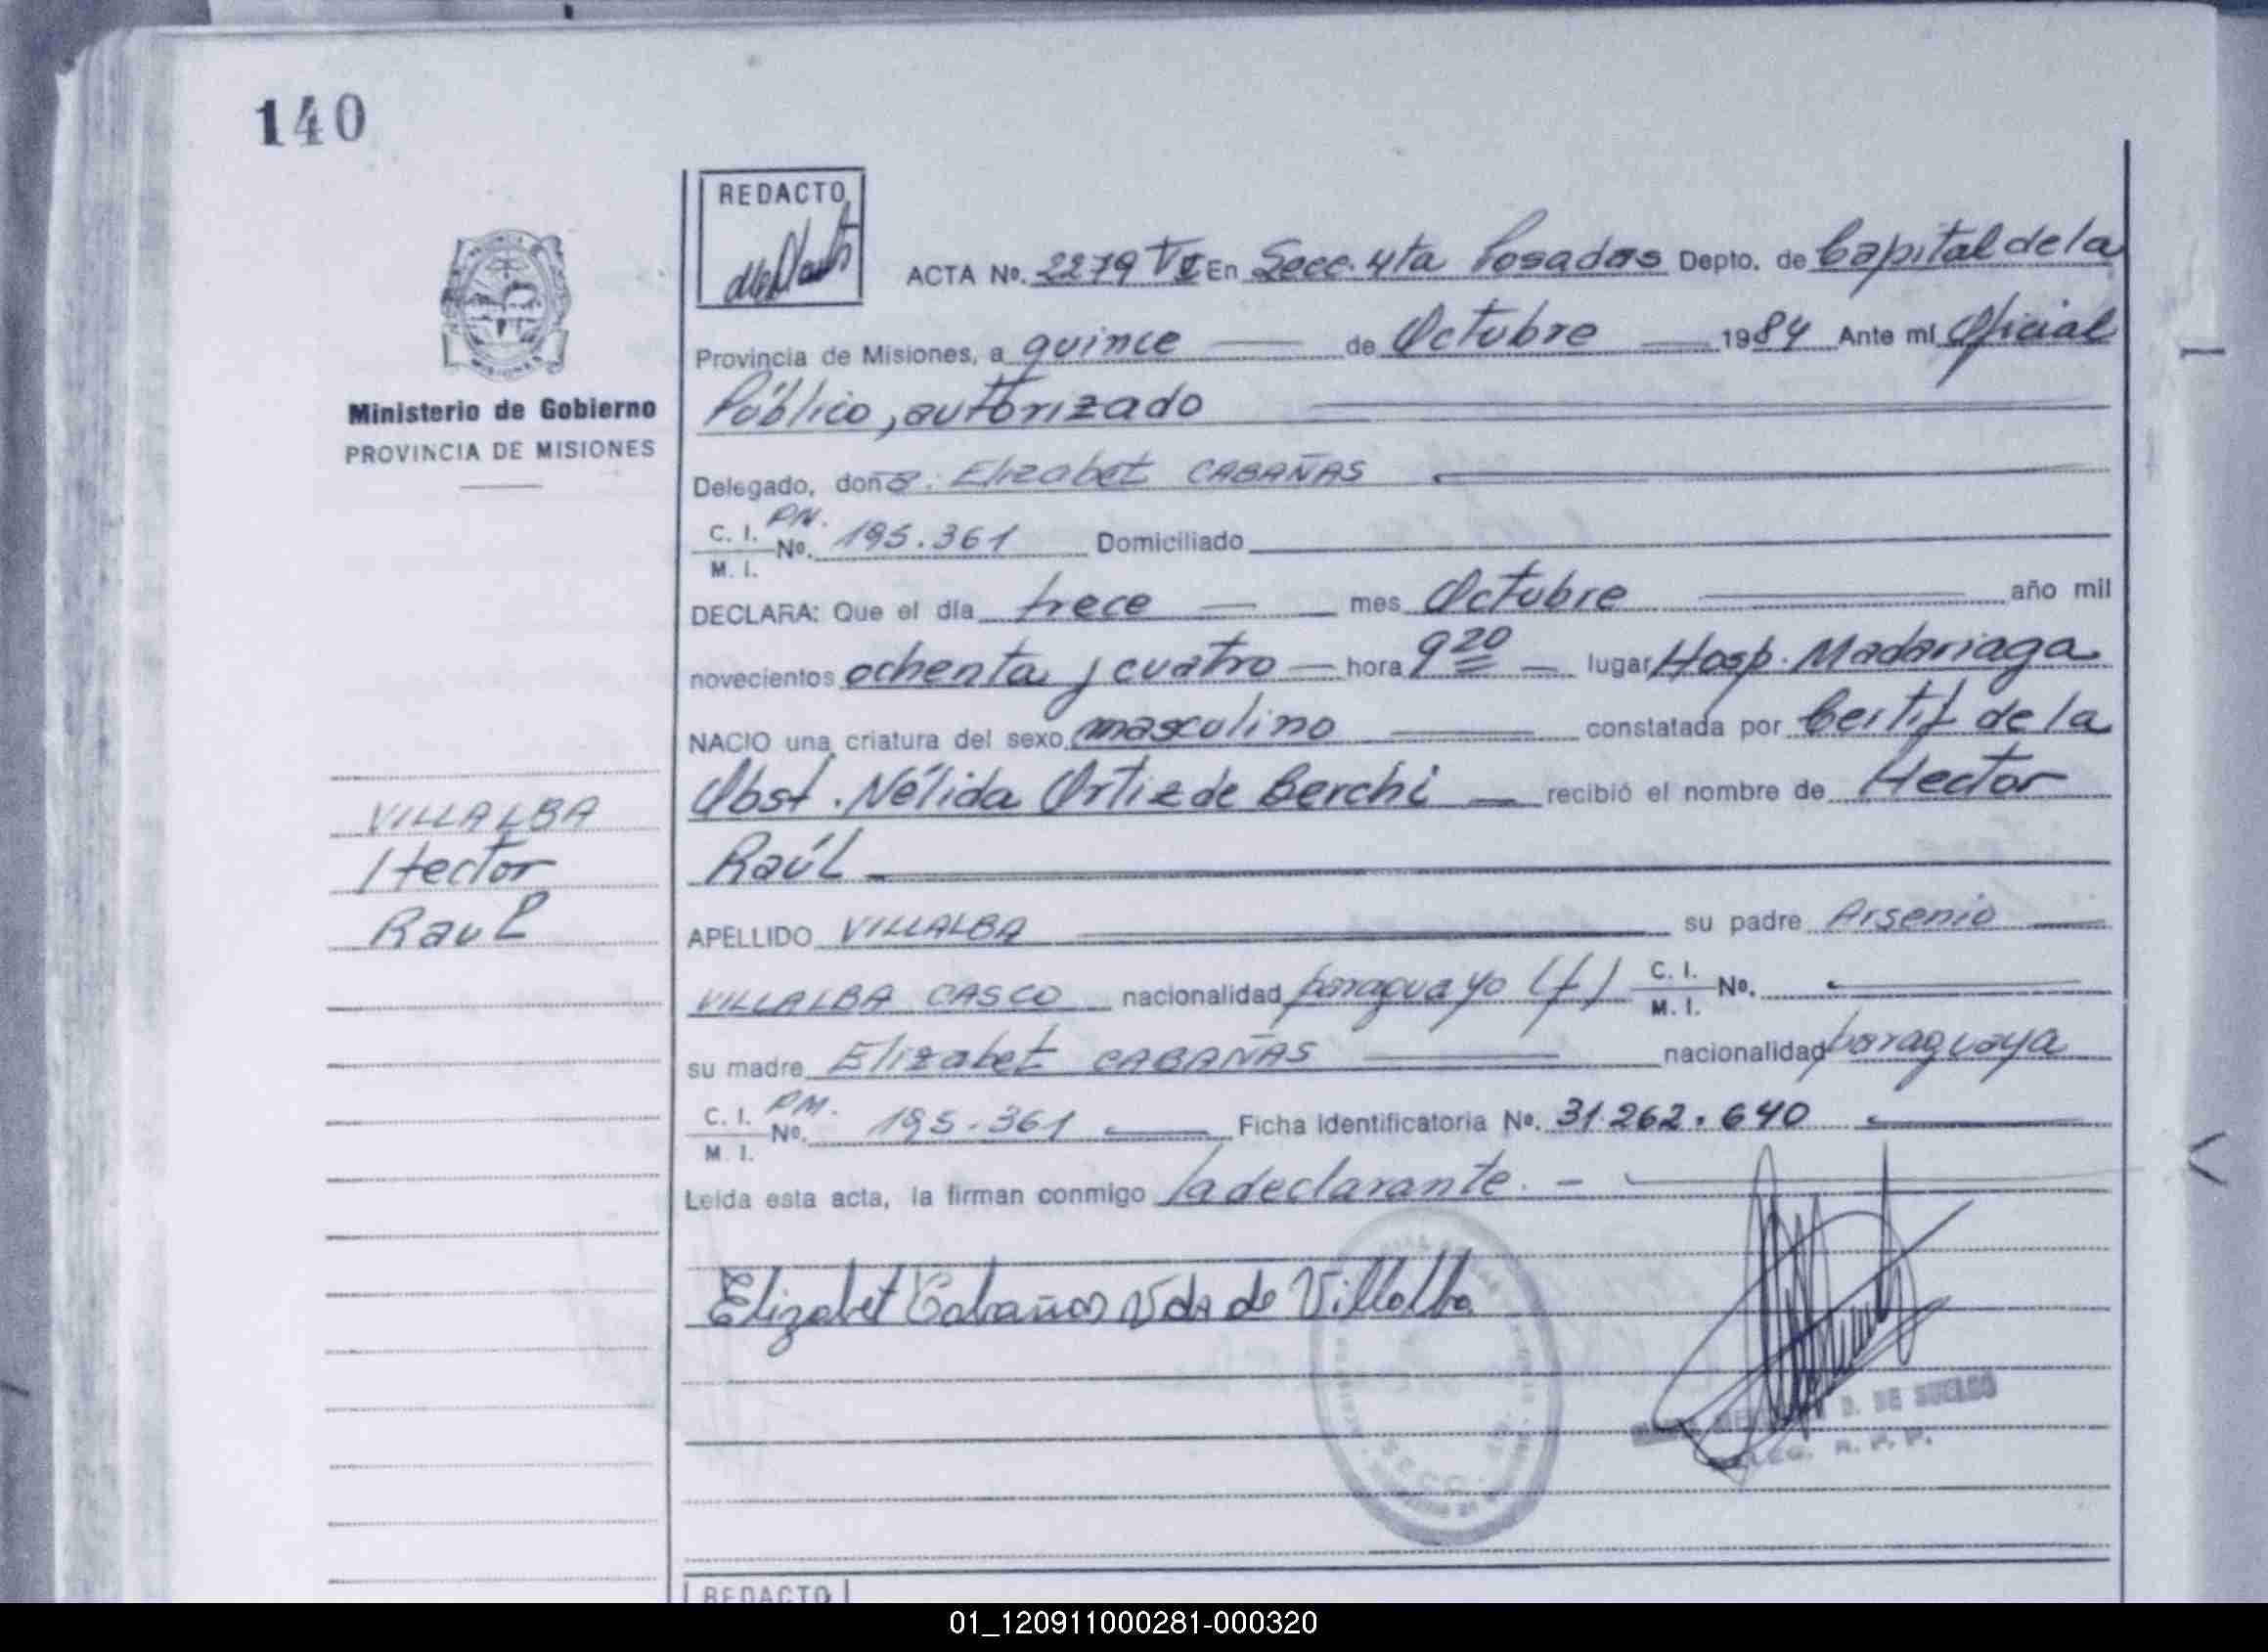 140
REDACTO
ACTA Nº. 2279 T VI En Secc. 4ta Posadas Depto. de Capital de la
Provincia de Misiones, a quince de Octubre 1984 Ante mí Oficial
Público, autorizado
Ministerio de Gobierno
PROVINCIA DE MISIONES
Delegado, doña. Elizabet CABAÑAS
C. I. Nº. 195.361 Domiciliado
M. I.
DECLARA: Que el día trece mes Octubre año mil
novecientos ochenta y cuatro hora 9 20 lugar Hosp. Madariaga
NACIO una criatura del sexo masculino constatada por Certif de la
Obst. Nélida Ortiz de Berchi recibió el nombre de Hector
Raúl
VILLALBA
Hector
Raul
APELLIDO VILLALBA su padre Arsenio
VILLALBA CASCO nacionalidad paraguayo (f) C. I. Nº.
M. I.
su madre Elizabet CABAÑAS nacionalidad paraguaya
C. I. Nº. 195.361 Ficha Identificatoria Nº. 31.262.640
M. I.
Leída esta acta, la firman conmigo la declarante. -
Elizabet Cabañas Vda de Villalba
D. DE SUELDO
R. P. P.
REDACTO
01_120911000281-000320